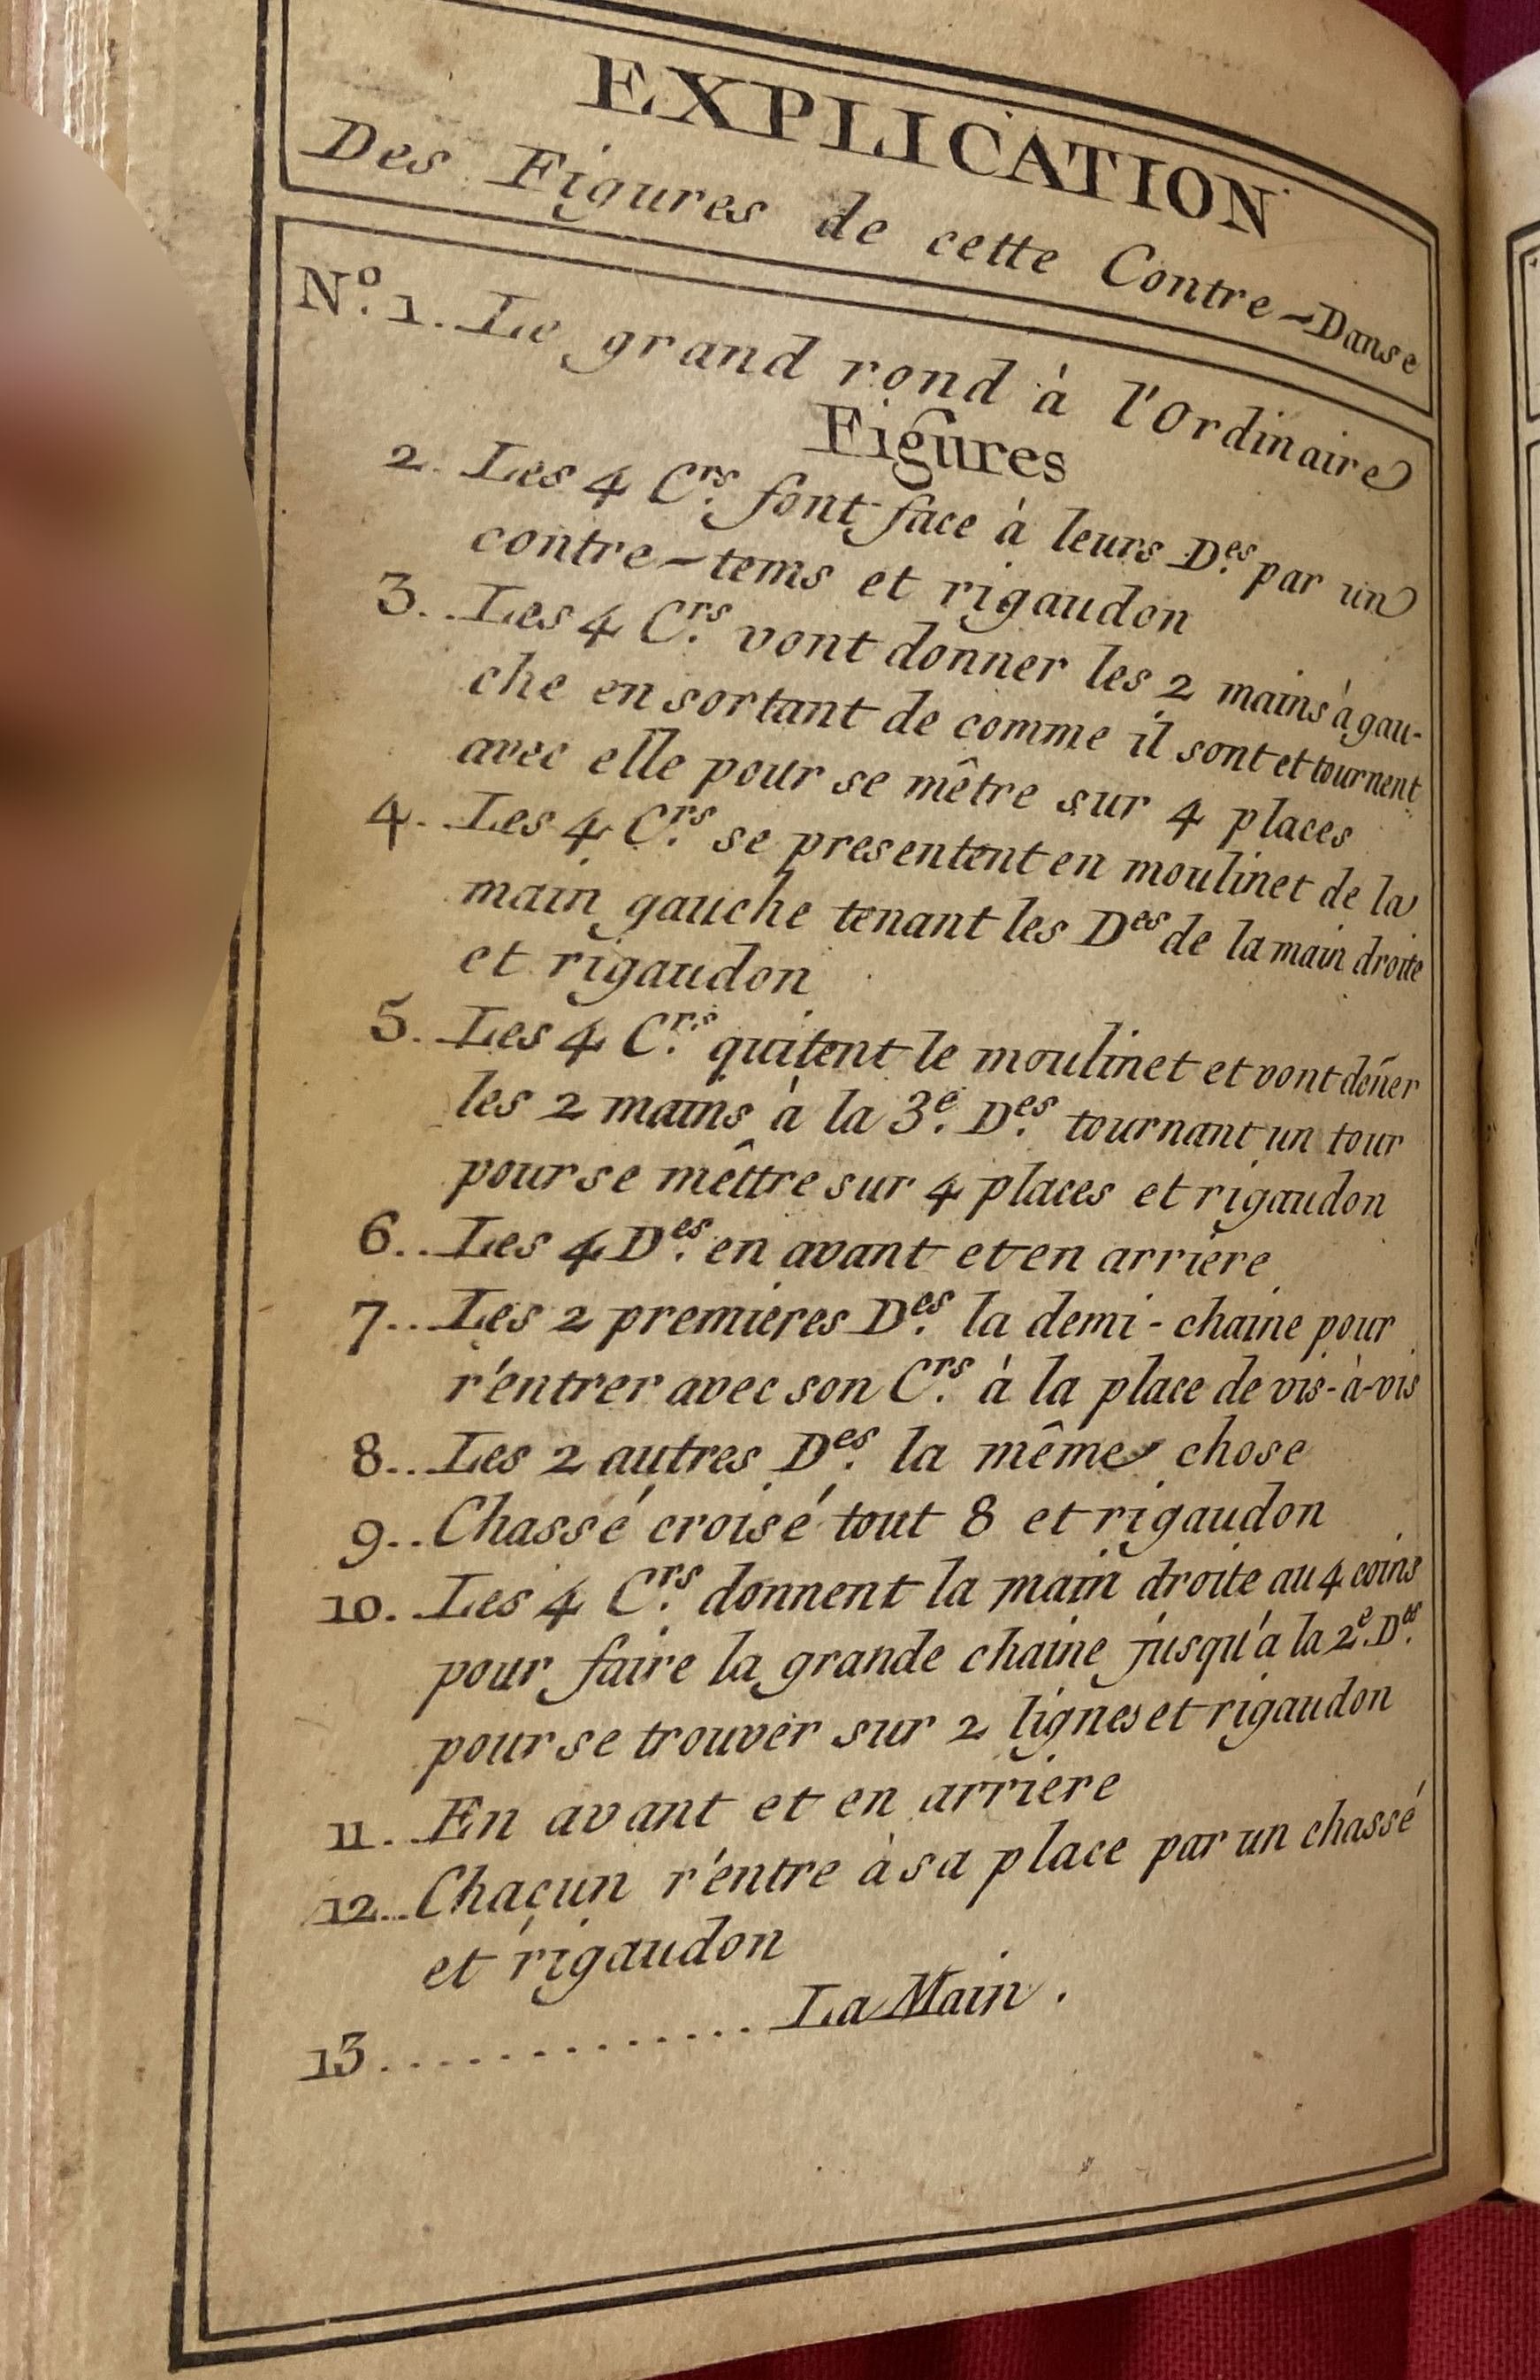 EXPLICATION
Des Figures de cette Contre-Danse
Nº. 1. Le grand rond à l'Ordinaire
Figures
2. Les 4 Crs. font face à leurs Des. par un
contre-tems et rigaudon
3. Les 4 Crs. vont donner les 2 mains à gau-
che en sortant de comme il sont et tournent
avec elle pour se mêtre sur 4 places
4. Les 4 Crs. se presentent en moulinet de la
main gauche tenant les Des de la main droite
et rigaudon
5. Les 4 Crs. quitent le moulinet et vont doñer
les 2 mains à la 3e. Des. tournant un tour
pour se mêttre sur 4 places et rigaudon
6.. Les 4 Des. en avant et en arriere
7... Les 2 premieres Des. la demi-chaine pour
r'entrer avec son Crs. à la place de vis-à-vis
8... Les 2 autres Des. la même chose
9.. Chassé croisé tout 8 et rigaudon
10. Les 4 Crs. donnent la main droite au 4 coins
pour faire la grande chaine jusqu'à la 2e. Des.
pour se trouver sur 2 lignes et rigaudon
11. En avant et en arriere
12... Chacun r'entre à sa place par un chassé
et rigaudon
13.............. La Main.